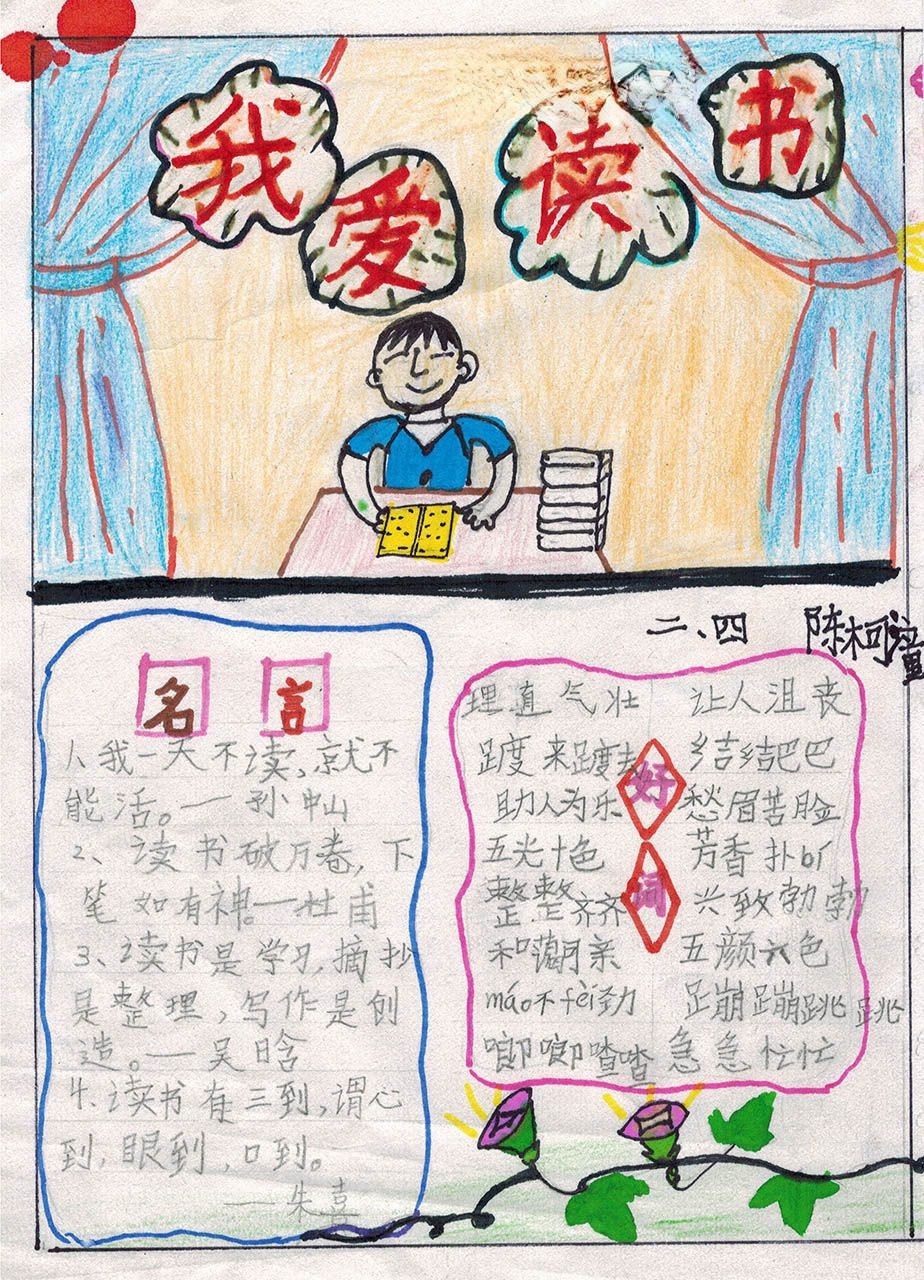 我爱读书
二、四 陈柯潼
名言
1、我一天不读,就不
能活。—孙中山
2、读书破万卷,下
笔如有神。—杜甫
3、读书是学习,摘抄
是整理,写作是创
造。—吴晗
4、读书有三到,谓心
到,眼到,口到。
——朱熹
好词
理直气壮 让人沮丧
踱来踱去 结结巴巴
助人为乐 愁眉苦脸
五光十色 芳香扑bí
整整齐齐 兴致勃勃
和蔼可亲 五颜六色
máo不fèi劲 蹦蹦跳跳
唧唧喳喳 急急忙忙